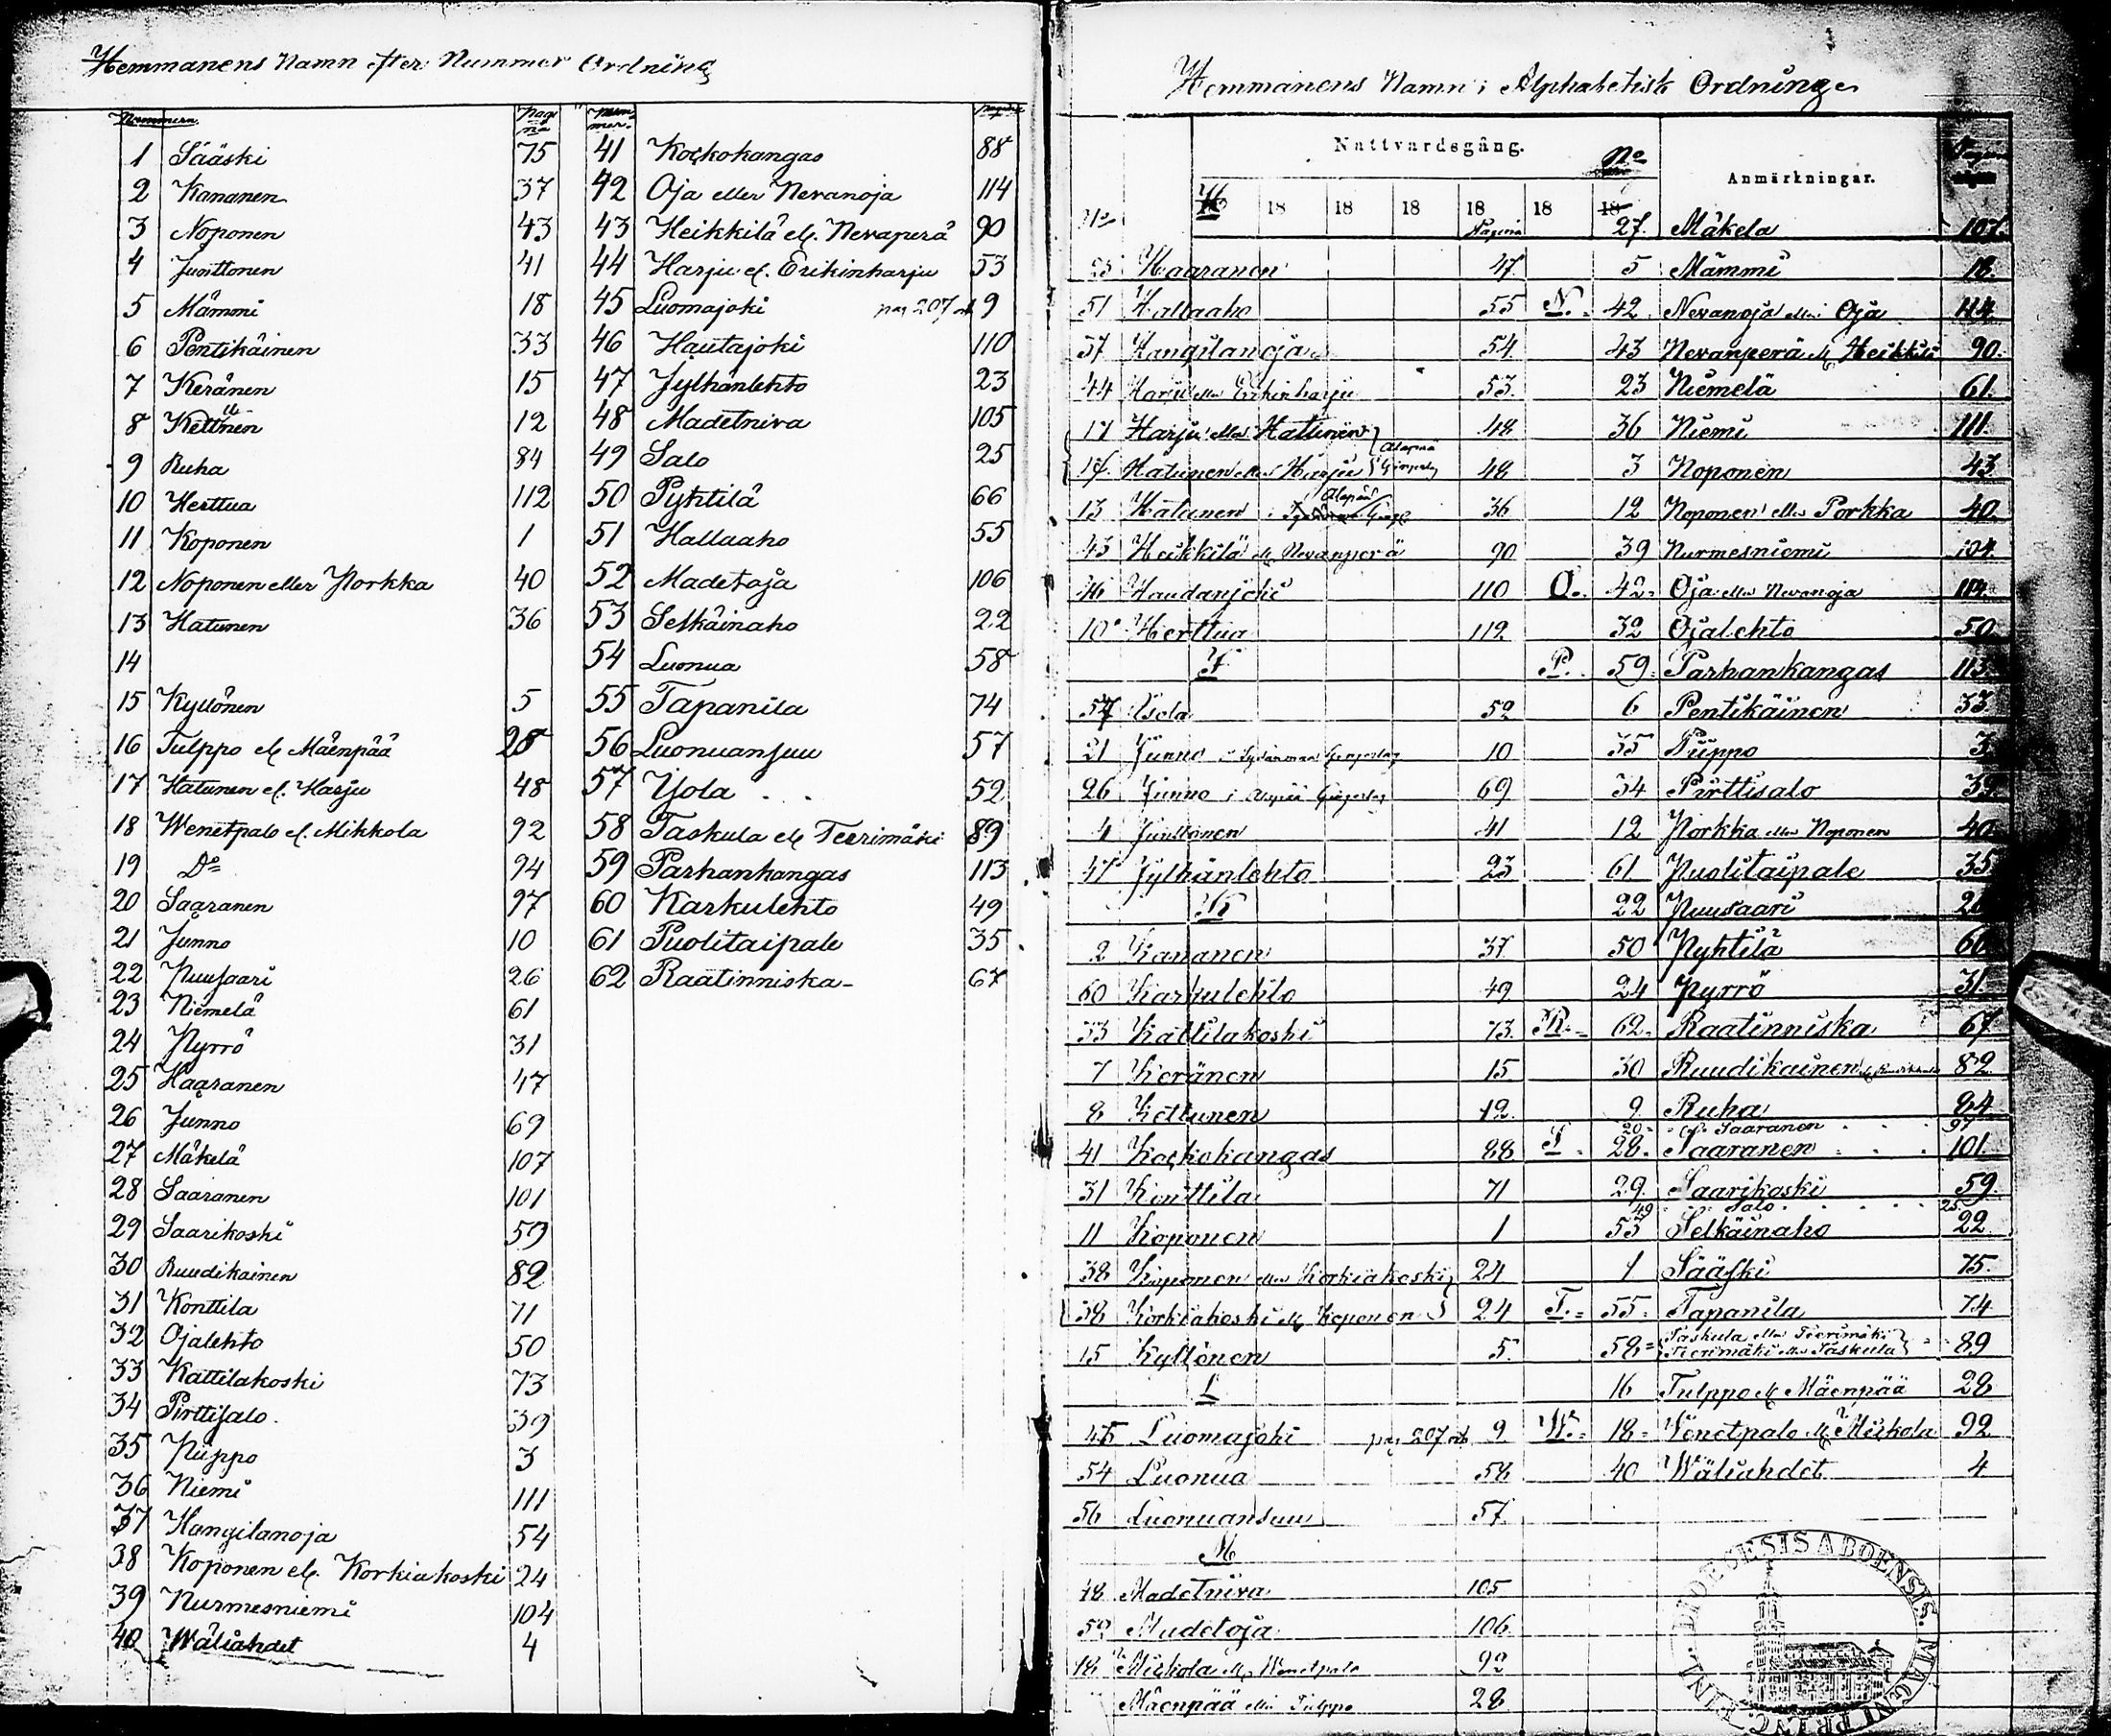 Hemmanens Namn efter Nummer Ordning
Nummern Pagina Nummer. Pagina
1 Sääski 75
2 Kananen 37
3 Noponen 43
4 Junttonen 41
5 Mämmi 18
6 Pentikäinen 33
7 Keränen 15
8 Kettunen 12
9 Ruha 84
10 Herttua 112
11 Koponen 1
12 Noponen eller Porkka 40
13 Hatunen 36
14
15 Kyllönen 5
16 Tulppo ell. Mäenpää 28
17 Hatunen el. Harju 48
18 Wenetpalo el. Mikkola 92
19 Do 94
20 Saaranen 97
21 Junno 10
22 Puusaari 26
23 Niemelä 61
24 Pyrrö 31
25 Haaranen 47
26 Junno 69
27 Mäkelä 107
28 Saaranen 101
29 Saarikoski 59
30 Ruudikainen 82
31 Konttila 71
32 Ojalehto 50
33 Kattilakoski 73
34 Pirttisalo. 39
35 Piippo 3
36 Niemi 111
37 Kangilanoja 54
38 Koponen ell. Korkiakoski 24
39 Nurmesniemi 104
40 Wäliahdet 4
41 Kockokangas 88
42 Oja eller Nevanoja 114
43 Heikkilä ell. Nevaperä 90
44 Harju el. Erikinharju 53
45 Luomajoki pag 207 och 9
46 Hautajoki 110
47 Jylhänlehto 23
48 Madetniva 105
49 Salo 25
50 Pyhtilä 66
51 Hallaaho 55
52 Madetoja 106
53 Selkäinaho 22
54 Luonua 58
55 Tapanila 74
56 Luonuansuu 57
57 Ysola 52
58 Taskula ell Teerimäki 89
59 Parhankangas 113
60 Karkulehto 49
61 Puolitaipale 35
62 Raatinniska 67
Hemmanens Namn i Alphabetisk Ordning
Nattvardsgång. No Anmärkningar. Pagina
No H 18 18 18 18 18 18
Pagina
25 Haaranen 47
51 Hallaaho 55
37 Kangilanoja 54
44 Harju eller Erikinharju 53
17 Harju eller Hatunen 48
17 Hatunen eller Harju 48
13 Hatunen i Alapää 36
43 Heikkilä ell Nevanperä 90
46 Haudanjoki 110
10 Herttua 112
J
57 Isola 52
21 Junno i Sydänmaa Gingerlag 10
26 Junno i Alapää Gingerlag 69
4 Junttonen 41
47 Jylhänlehto 23
K
2 Kananen 37
60 Karkulehto 49
33 Kattilakoski 73
7 Keränen 15
8 Kettunen 12
41 Kockokangas 88
31 Konttila 71
11 Koponen 1
38 Koponen eller Korkiakoski 24
38 Korkiakoski ell Koponen 24
15 Kyllönen 5
L
45 Luomajoki pag 207 och 9
54 Luonua 58
56 Luonuansuu 57
M
48 Madetniva 105
52 Madetoja 106
18 Mickola ell. Wenetpalo 92
Mäenpää eller Tulppo 28
27. Mäkela 107
5 Mämmi 18
N. 42 Nevanoja eller Oja 114
43 Nevanperä ell Heikkilä 90
23 Niemelä 61
36 Niemi 111
3 Noponen 43
12 Noponen eller Porkka 40
39 Nurmesniemi 104
O. 42 Oja eller Nevanoja 114
32 Ojalehto 50
P. 59 Parhankangas 113
6 Pentikäinen 33
35 Piippo 3
34 Pirttisalo 39
12 Porkka eller Noponen 40
61 Puolitaipale 35
22 Puusaari 26
50 Pyhtilä 66
24 Pyrrö 31
R. 62 Raatinniska 67
30 Ruudikainen 82
9 Ruha 84
20 Saaranen 97
S. 28. Saaranen 101
29 Saarikoski 59
49 Salo 25
53 Selkäinaho 22
1 Sääski 75
T. 55 Tapanila 74
58 Taskula eller Teerimäki 89
Teerimäki eller Taskula
16 Tulppo ell Mäenpää 28
W. 18 Wenetpalo ell Mickola 92
40 Wäliahdet 4
DIOECESIS ABOENSIS. MAGNI PRINC. FINL.